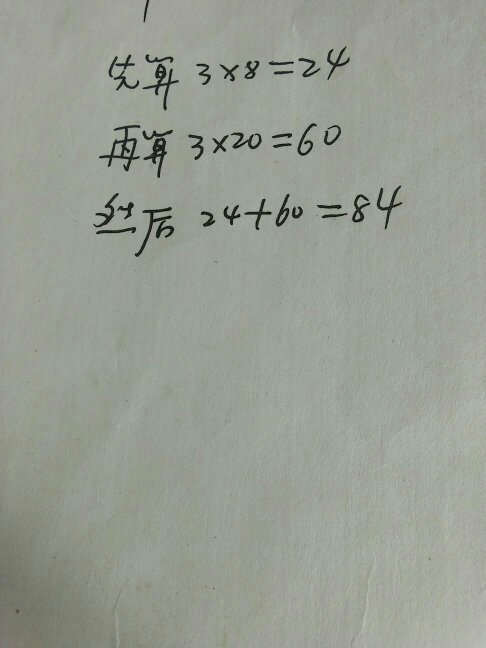 先算 3×8=24
再算 3×20=60
然后 24+60=84